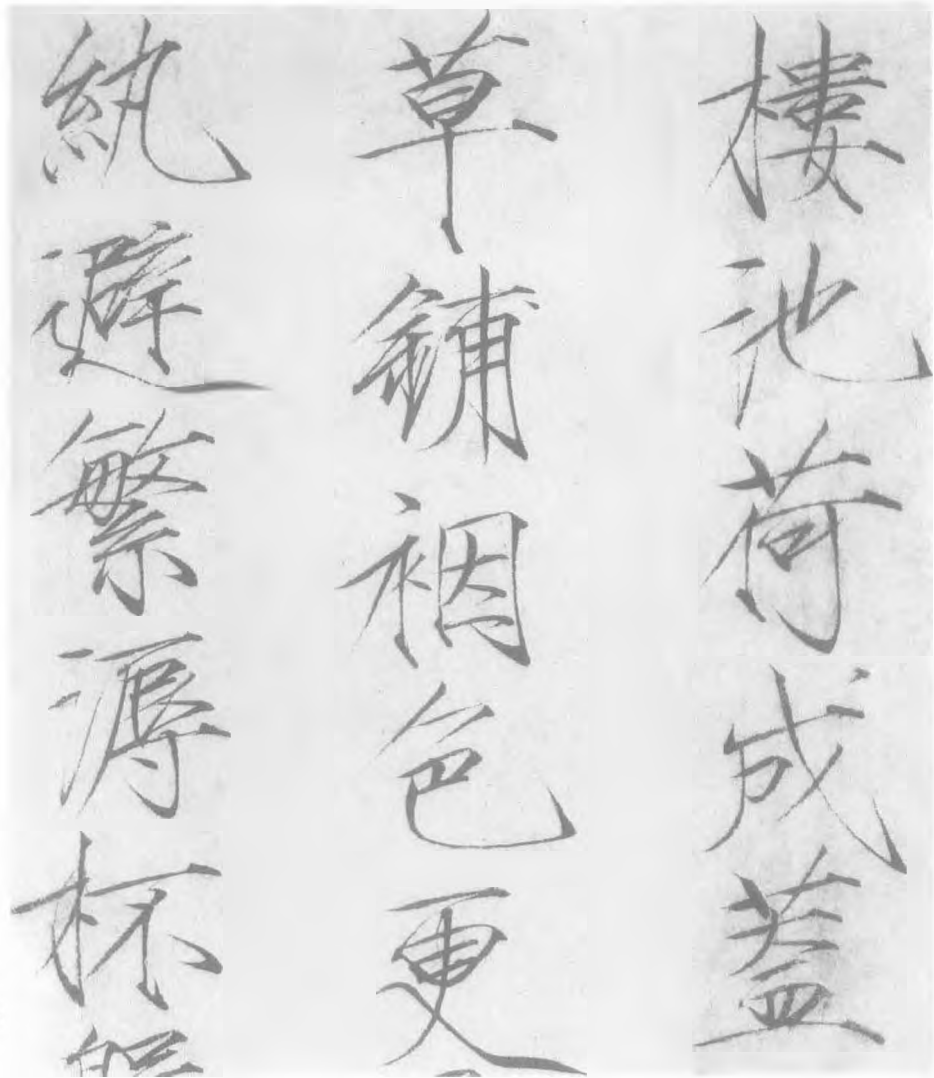 樓池荷成蓋
草鋪裀色更
紈避繁溽杯